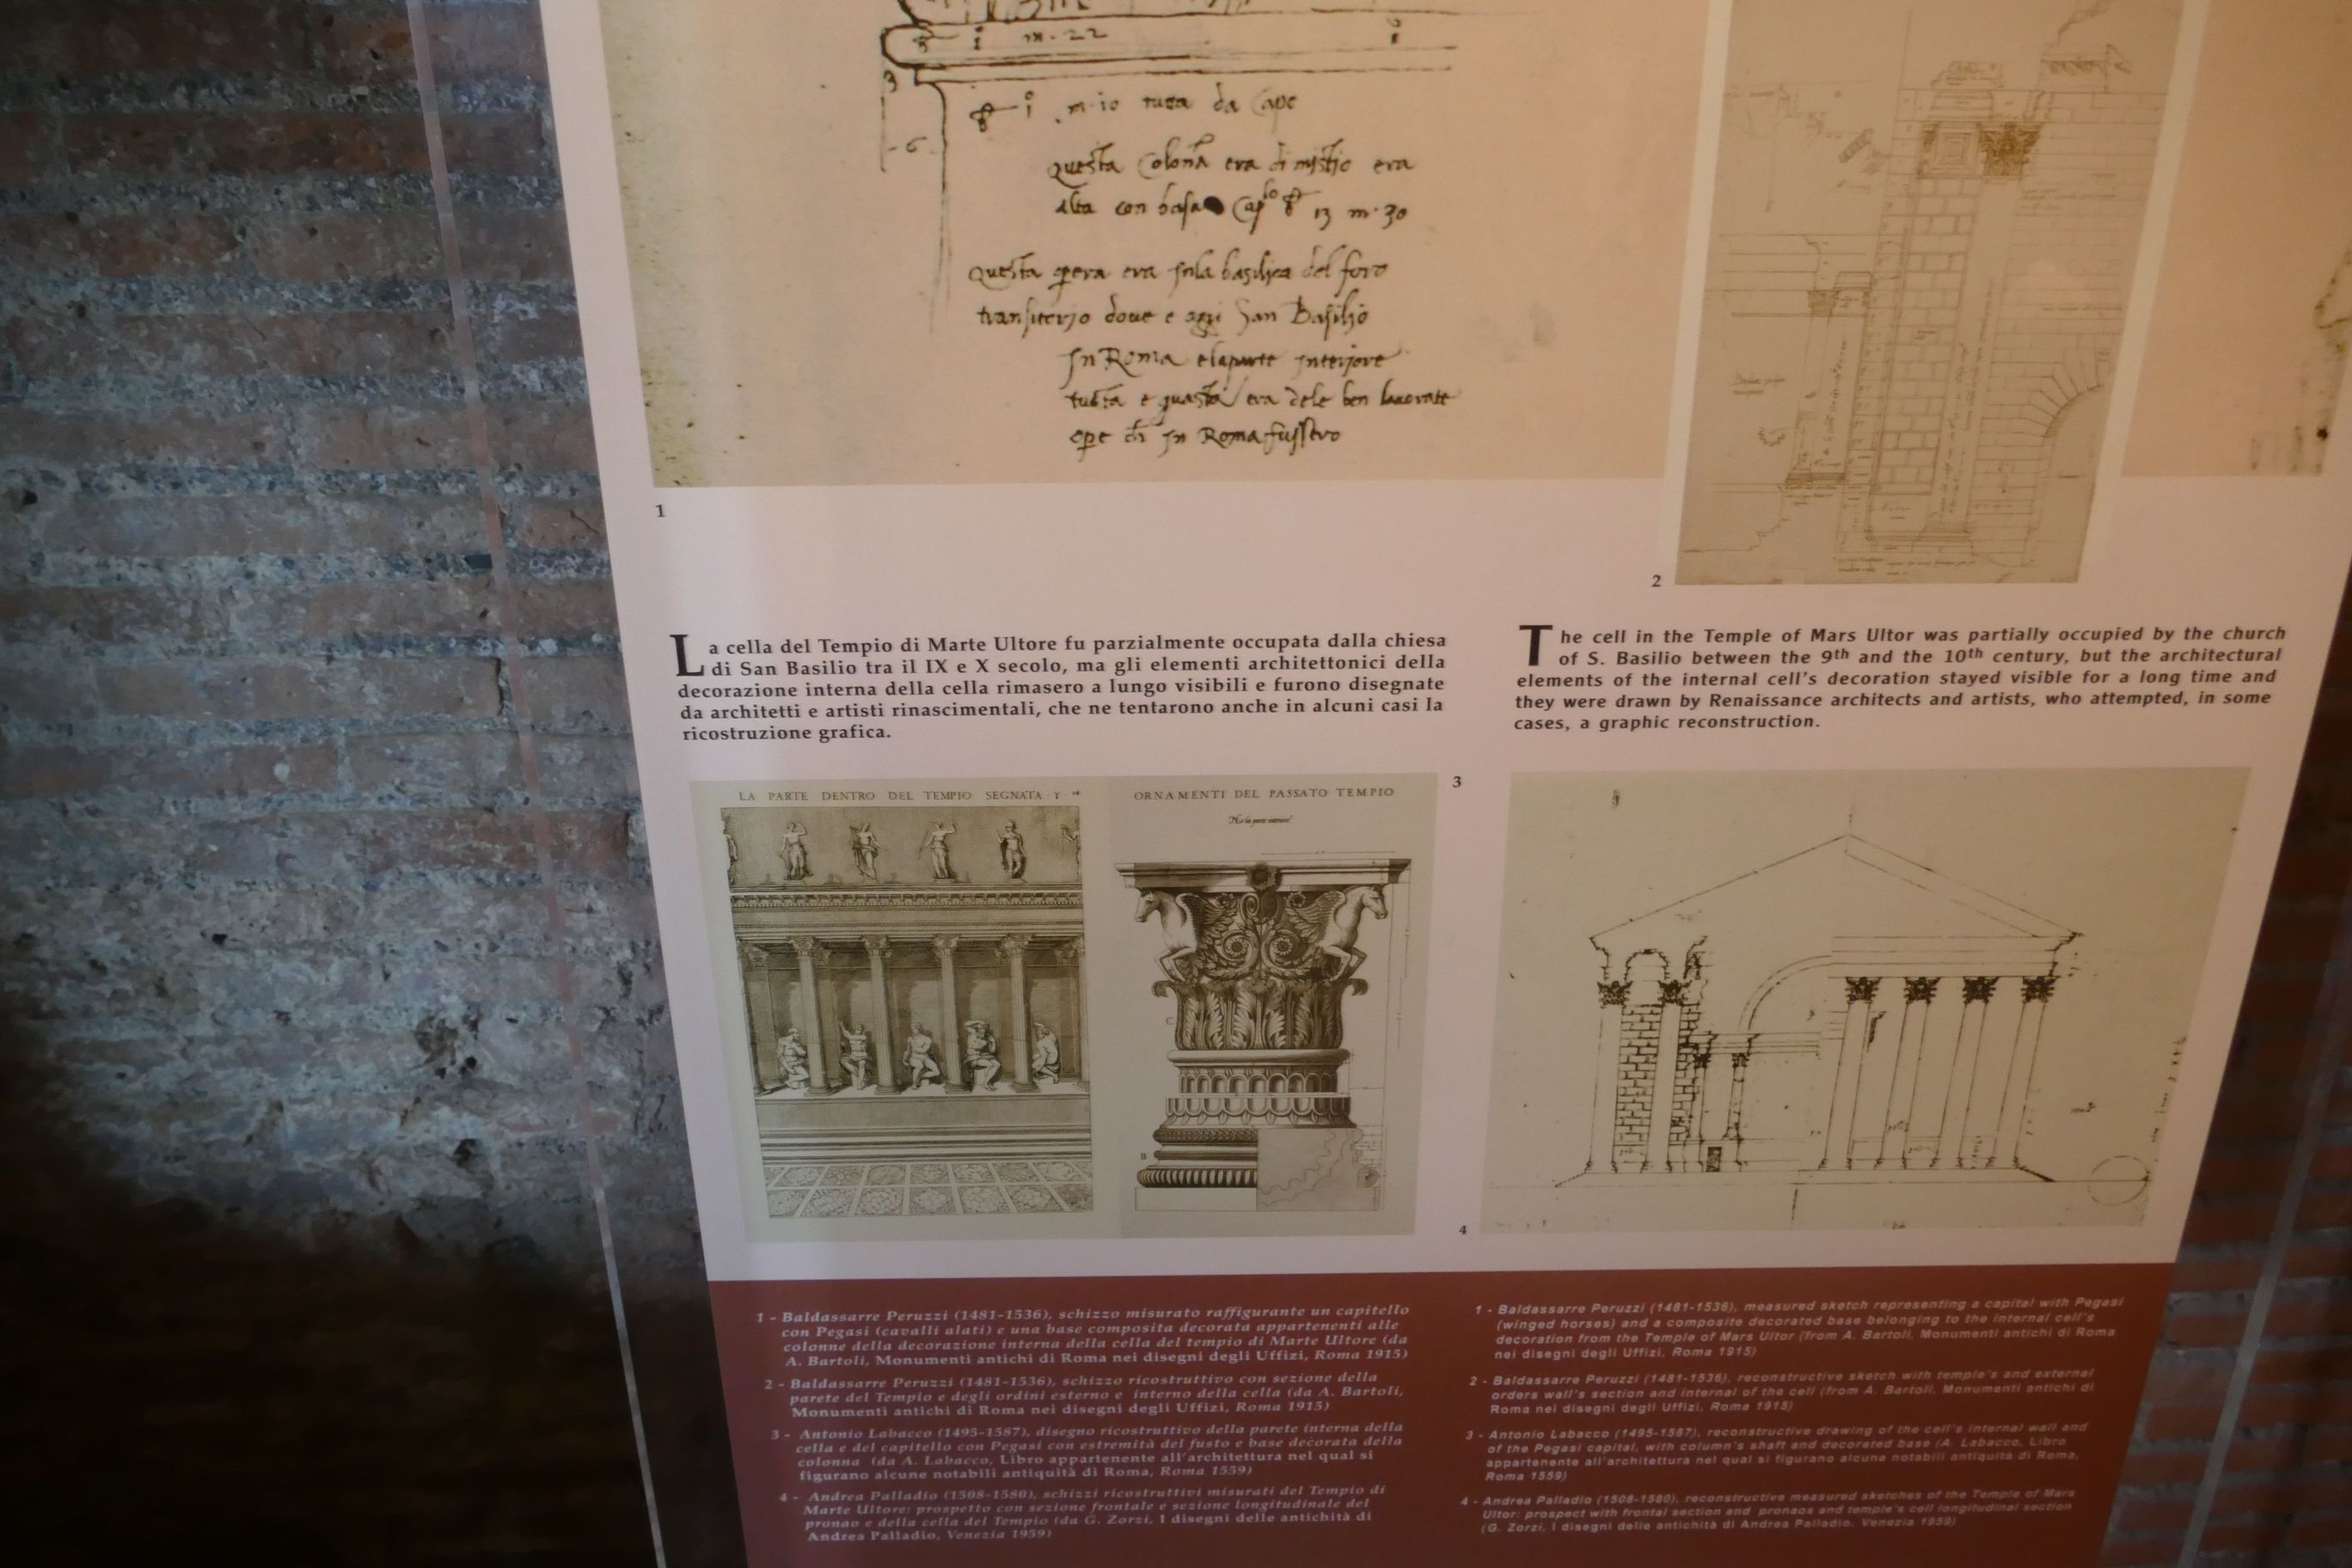 m·22
m·io tutta da Cape
Questa Colona era di mistio era
alta con basa Cap lo 13 m·30
Questa opera era basilica del foro
transiterio dove e ogi San Basilio
In Roma e la parte interiore
tutta e guasta era dele ben lavorate
ope in Roma fussero
1
2
La cella del Tempio di Marte Ultore fu parzialmente occupata dalla chiesa
di San Basilio tra il IX e X secolo, ma gli elementi architettonici della
decorazione interna della cella rimasero a lungo visibili e furono disegnate
da architetti e artisti rinascimentali, che ne tentarono anche in alcuni casi la
ricostruzione grafica.
The cell in the Temple of Mars Ultor was partially occupied by the church
of S. Basilio between the 9th and the 10th century, but the architectural
elements of the internal cell's decoration stayed visible for a long time and
they were drawn by Renaissance architects and artists, who attempted, in some
cases, a graphic reconstruction.
3
LA PARTE DENTRO DEL TEMPIO SEGNATA · Y ·
ORNAMENTI DEL PASSATO TEMPIO
C
B
4
1 - Baldassarre Peruzzi (1481-1536), schizzo misurato raffigurante un capitello
con Pegasi (cavalli alati) e una base composita decorata appartenenti alle
colonne della decorazione interna della cella del tempio di Marte Ultore (da
A. Bartoli, Monumenti antichi di Roma nei disegni degli Uffizi, Roma 1915)
2 - Baldassarre Peruzzi (1481-1536), schizzo ricostruttivo con sezione della
parete del Tempio e degli ordini esterno e interno della cella (da A. Bartoli,
Monumenti antichi di Roma nei disegni degli Uffizi, Roma 1915)
3 - Antonio Labacco (1495-1587), disegno ricostruttivo della parete interna della
cella e del capitello con Pegasi con estremità del fusto e base decorata della
colonna (da A. Labacco, Libro appartenente all'architettura nel qual si
figurano alcune notabili antiquità di Roma, Roma 1559)
4 - Andrea Palladio (1508-1580), schizzi ricostruttivi misurati del Tempio di
Marte Ultore: prospetto con sezione frontale e sezione longitudinale del
pronao e della cella del Tempio (da G. Zorzi, I disegni delle antichità di
Andrea Palladio, Venezia 1959)
1 - Baldassarre Peruzzi (1481-1536), measured sketch representing a capital with Pegasi
(winged horses) and a composite decorated base belonging to the internal cell's
decoration from the Temple of Mars Ultor (from A. Bartoli, Monumenti antichi di Roma
nei disegni degli Uffizi, Roma 1915)
2 - Baldassarre Peruzzi (1481-1536), reconstructive sketch with temple's and external
orders wall's section and internal of the cell (from A. Bartoli, Monumenti antichi di
Roma nei disegni degli Uffizi, Roma 1915)
3 - Antonio Labacco (1495-1587), reconstructive drawing of the cell's internal wall and
of the Pegasi capital, with column's shaft and decorated base (A. Labacco, Libro
appartenente all'architettura nel qual si figurano alcune notabili antiquità di Roma,
Roma 1559)
4 - Andrea Palladio (1508-1580), reconstructive measured sketches of the Temple of Mars
Ultor: prospect with frontal section and pronaos and temple's cell longitudinal section
(G. Zorzi, I disegni delle antichità di Andrea Palladio, Venezia 1959)